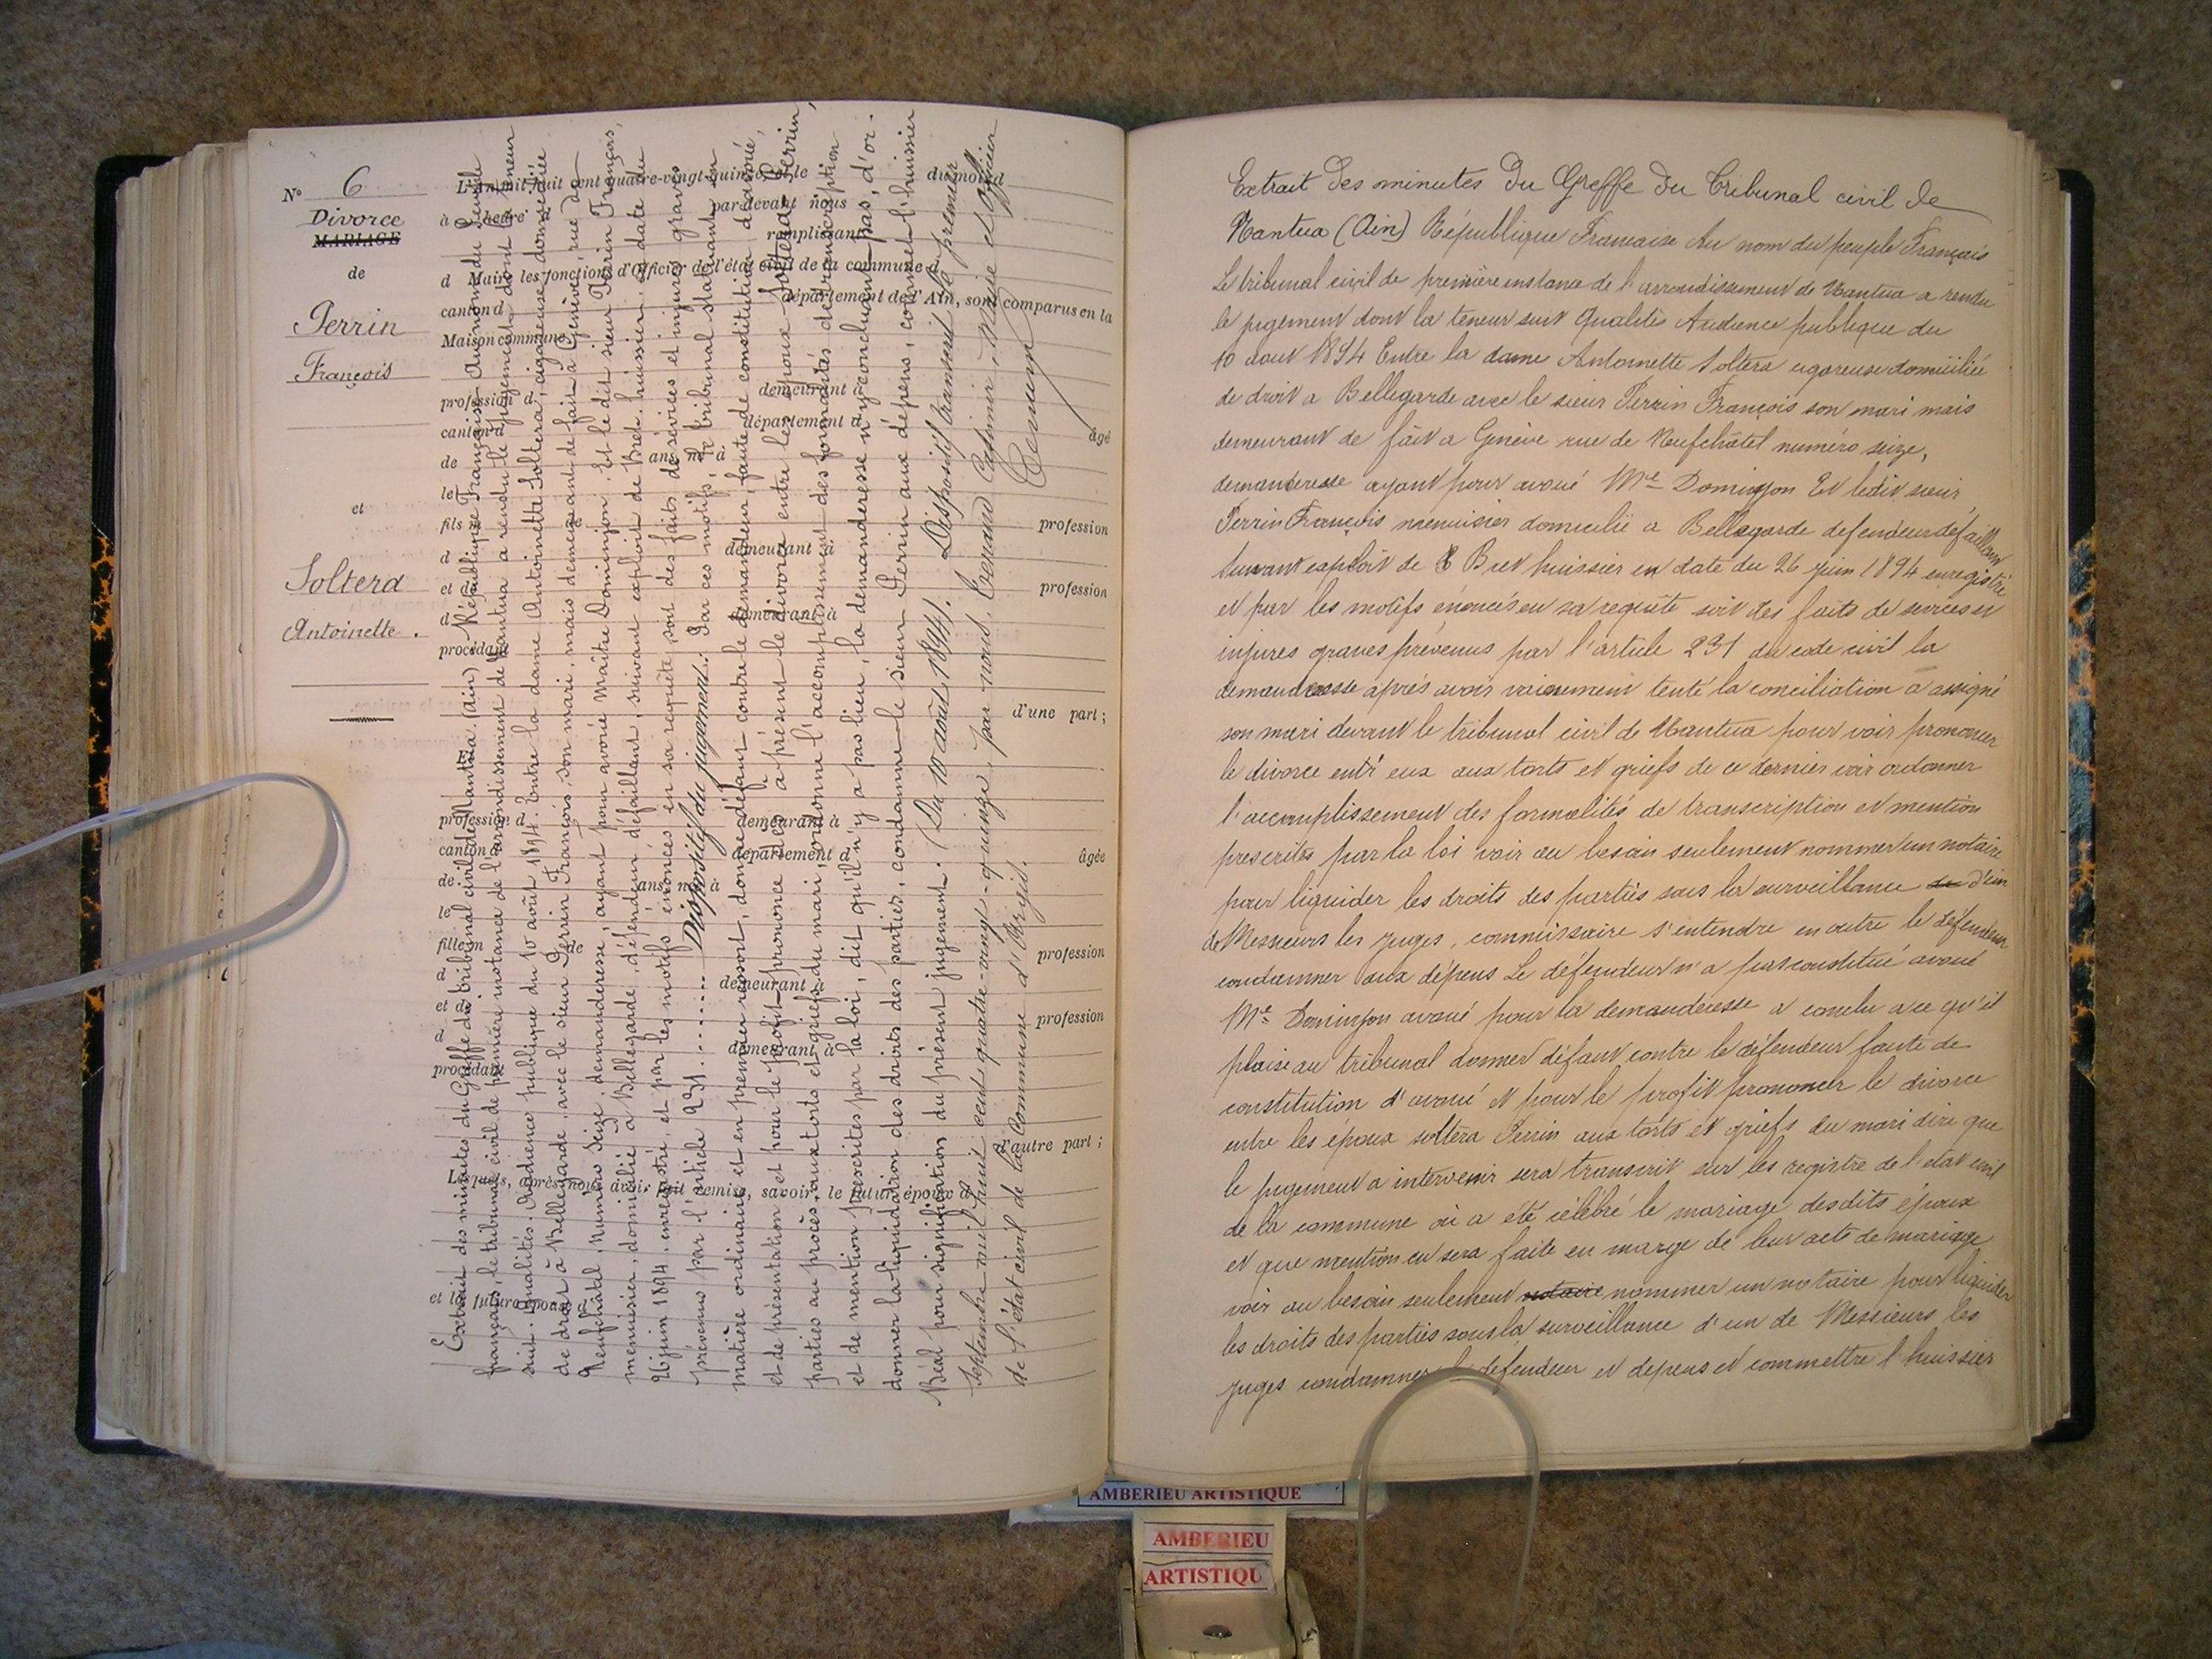 N° 6
Divorce
MARIAGE
de
Perrin
François
et
Soltera
Antoinette.
L'an mil huit cent quatre-vingt-quinze, et le du mois d
à heure d par devant nous
remplissant
d Maire les fonctions d'Officier de l'état civil de la commune d
canton d département de l'Ain, sont comparus en la
Maison commune
profession d demeurant à
canton d département d âgé
de ans né à
le
fils de profession
d demeurant à
et de profession
d demeurant à
procédant
d'une part ;
Et
profession d demeurant à
canton d département d âgée
de ans née à
le
fille m de profession
d demeurant à
et de profession
d demeurant à
procédant
d'autre part ;
Lesquels, après nous avoir fait remise, savoir : le futur époux d
et la future épouse d
Extrait des minutes du Greffe du tribunal civil de Nantua (Ain) République Française Au nom du Peuple
français, le tribunal civil de première instance de l'arrondissement de Nantua a rendu le jugement dont la teneur
suit. Qualités. Audience publique du 10 août 1894. Entre la dame Antoinette Soltera, cigareuse, domiciliée
de droit à Bellegarde avec le sieur Perrin François, son mari, mais demeurant de fait à Genève, rue de
Neufchâtel, Numéro Seize, demanderesse, ayant pour avoué Maître Dominjon. Et le dit sieur Perrin François,
menuisier, domicilié à Bellegarde, défendeur défaillant, suivant exploit de Bret, huissier en date du
26 juin 1894, enregistré, et par les motifs énoncés en sa requête, soit des faits de sévices et injures graves
prévenus par l'article 231 ........ Dispositif du jugement: Par ces motifs, Le tribunal statuant en
matière ordinaire et en premier ressort, donne défaut contre le demandeur, faute de constitution d'avoué,
et de présentation et pour le profit prononce dès à présent le divorce entre les époux Soltera-Perrin,
parties au procès, aux torts et griefs du mari, ordonne l'accomplissement des formalités de transcription
et de mention prescrites par la loi, dit qu'il n'y a pas lieu, la demanderesse n'y concluant pas, d'or-
donner la liquidation des droits des parties, condamne le sieur Perrin aux dépens, commet l'huissier
Béal pour signification du présent jugement. (Du 10 août 1894). Dispositif transcrit le premier
Septembre mil huit cent quatre-vingt-quinze, par nous, Tenand Casimir, Maire et officier
de l'état civil de la Commune d'Argis.
Extrait des minutes du Greffe du Tribunal civil de
Nantua (Ain) République Francaise Au nom du peuple Français
Le tribunal civil de première instance de l'arrondissement de Nantua a rendu
le jugement dont la teneur suit Qualités Audience publique du
10 aout 1894 Entre la dame Antoinette Soltera cigareuse domiciliée
de droit a Bellegarde avec le sieur Perrin François son mari mais
demeurant de fait a Genève rue de Neufchâtel numéro seize,
demanderesse ayant pour avoué Me Dominjon Et ledit sieur
Perrin François menuisier domicilié a Bellegarde defendeur défaillant
suivant exploit de Bret huissier en date du 26 juin 1894 enregistré
et par les motifs énoncés en sa requête soit des faits de sevices et
injures graves prévenus par l'article 231 du code civil la
demanderesse après avoir vainement tenté la conciliation a assigné
son mari devant le tribunal civil de Nantua pour voir prononcer
le divorce entr'eux aux torts et griefs de ce dernier voir ordonner
l'accomplissement des formalités de transcription et mention
prescrites par la loi voir au besoin seulement nommer un notaire
pour liquider les droits des parties sous la surveillance de d'un
de Messieurs les juges, commissaire s'entendre en outre le défendeur
condamner aux dépens Le défendeur n'a pas constitué avoué
Me Dominjon avoué pour la demanderesse a conclu a ce qu'il
plaise au tribunal donner défaut contre le défendeur faute de
constitution d'avoué et pour le profit prononcer le divorce
entre les époux soltera Perrin aux torts et griefs du mari dire que
le jugement a intervenir sera transcrit sur les registre de l'etat civil
de la commune où a été célébré le mariage desdits époux
et que mention en sera faite en marge de leur acte de mariage
voir au besoin seulement notaire nommer un notaire pour liquider
les droits des parties sous la surveillance d'un de Messieurs les
juges condamner defendeur et depens et commettre l'huissier
AMBERIEU ARTISTIQUE
AMBERIEU
ARTISTIQU